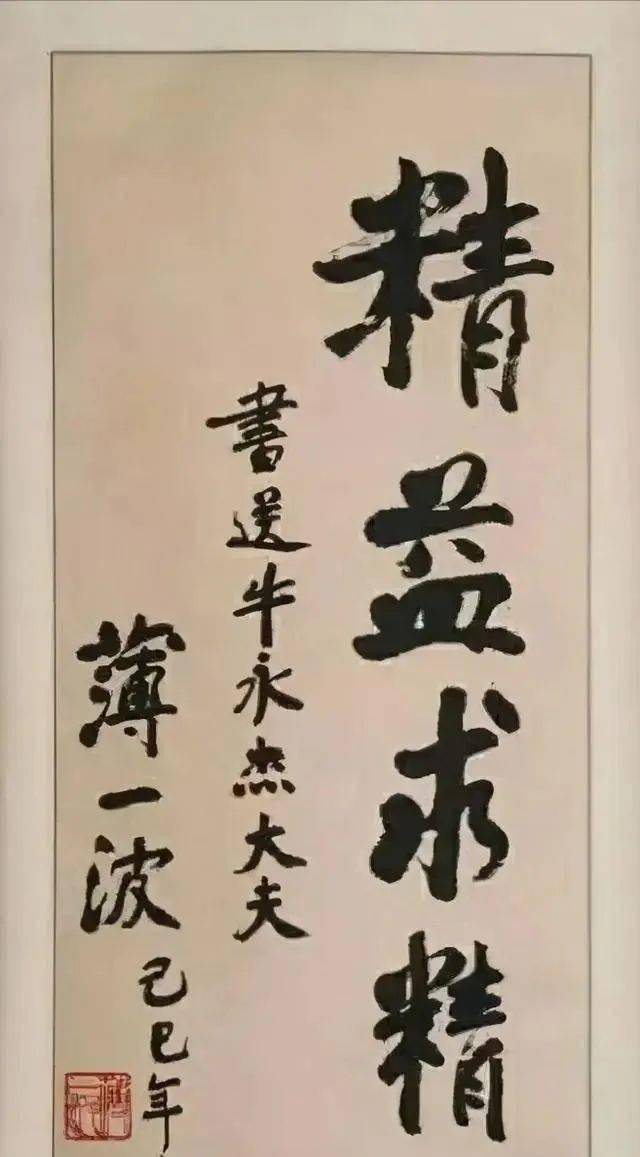 精益求精
書送牛永杰大夫
薄一波
己巳年